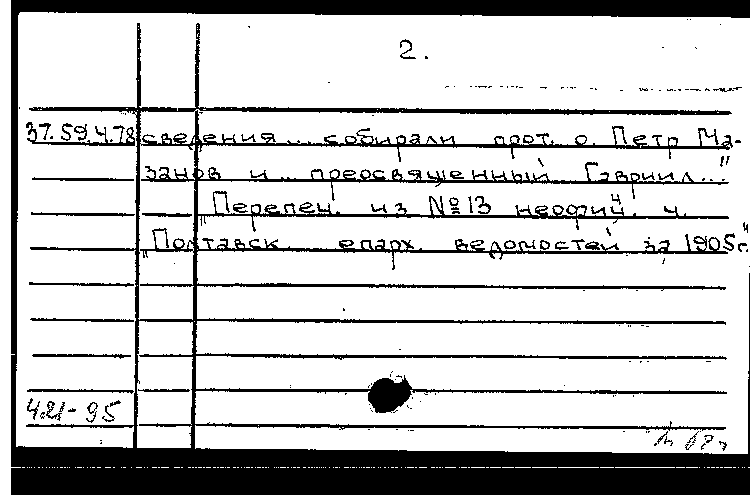 2.
37.59.4.78 сведения... собирали прот. о. Петр Ма-
занов и... преосвященный Гавриил..."
„Перепеч. из №13 неофиц. ч.
„Полтавск. епарх. ведомостей за 1905 г."
421-95